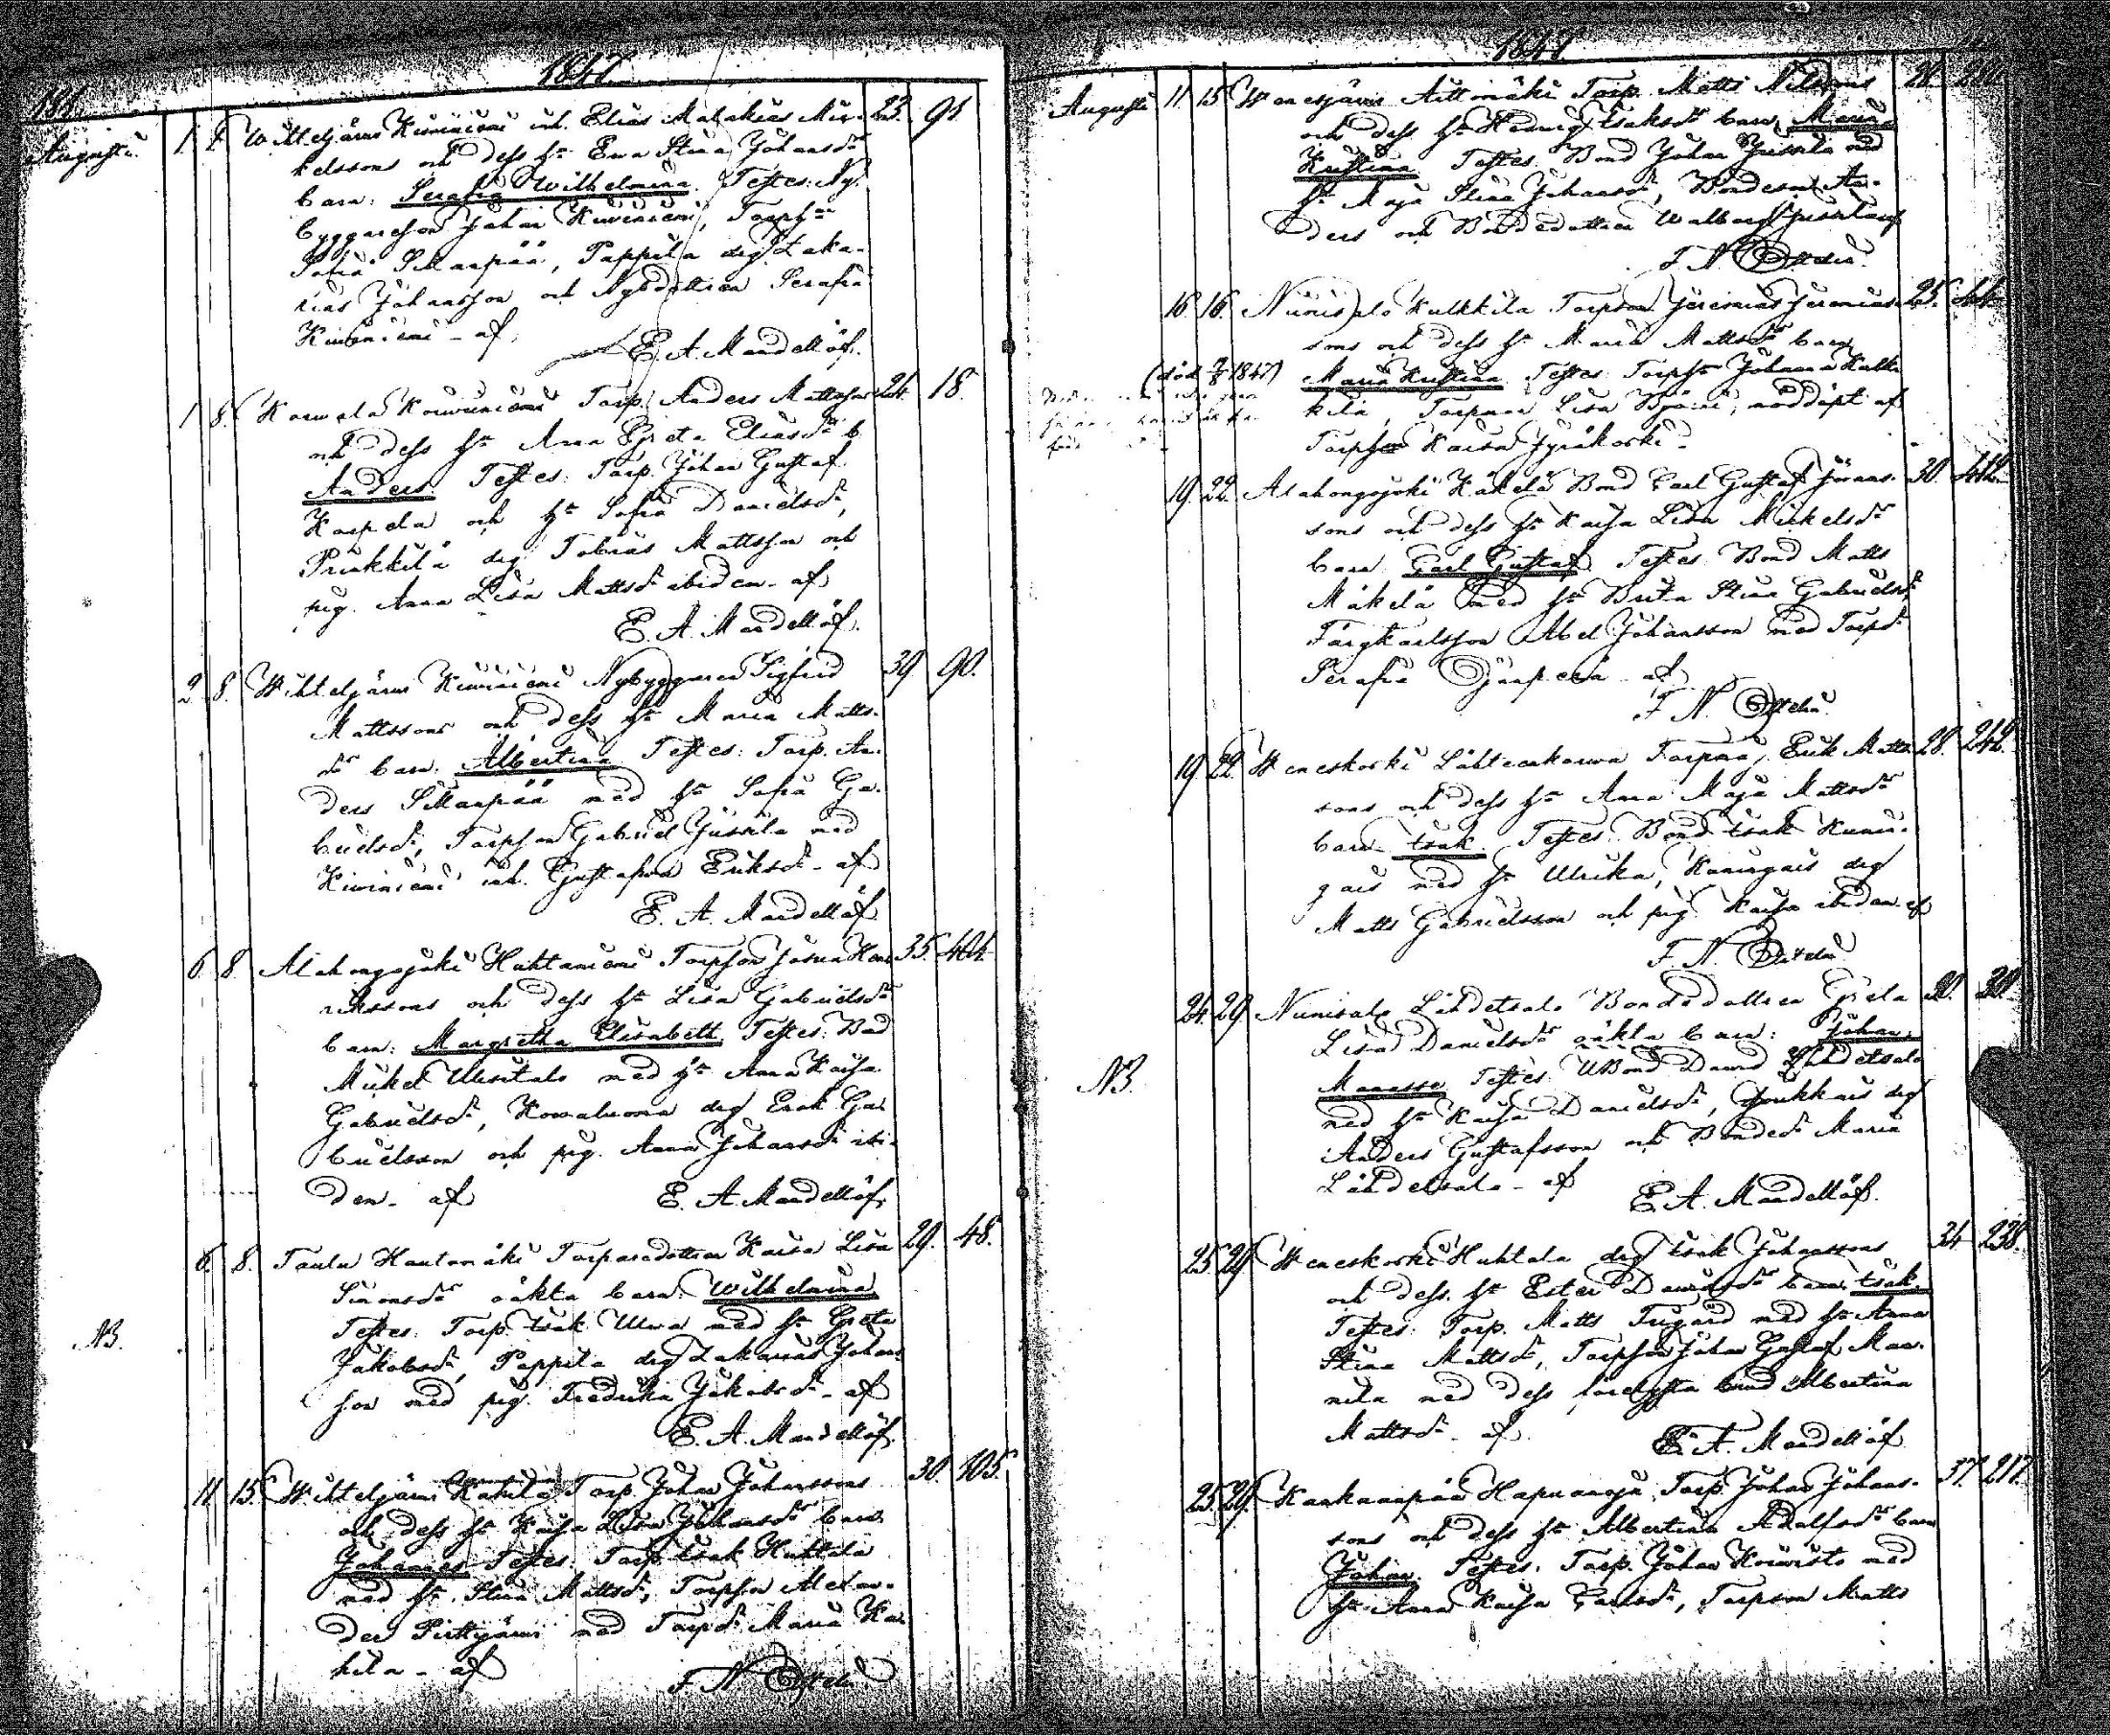 1847
Augusti 1 8 Wihteljärvi Kiviniemi inh. Elias Malakias Mic- 23. 91.
kelssons och dess hu Ewa Stina Johansdr
barn: Serafia Wilhelmina. Testes: Ny-
byggareson Johan Kiviniemi, Torphu
Sofia Sillanpää, Pappila drg Zaka-
rias Johansson och Nybdottren Serafia
Kiviniemi - af
E. A. Mandellöf.
1 8. Karvala Koivuniemi Torp. Anders Mattssons 24. 18.
och dess hu Anna Greta Eliasdr b.
Anders Testes: Torp. Johan Gustaf
Karpela och hu Sofia Danielsdr,
Prinkkilä drg Tobias Mattsson och
pig. Anna Lisa Mattsdr ibidem - af
E. A. Mandellöf.
2 8 Wihteljärvi Kiviniemi Nybyggaren Sigfrid 39 90.
Mattssons och dess hu Maria Matts-
dr barn: Albertina Testes: Torp. An-
ders Sillanpää med hu Sofia Ga-
brielsdr, Torpson Gabriel Jussila med
Kiviniemi inh. Gustafva Eriksdr - af
E. A. Mandellöf
6 8. Alahongojoki Huhtaniemi Torpson Josua Hen- 35. 404.
rikssons och dess hu Lisa Gabrielsdr
barn: Margretha Elisabeth. Testes: Bond
Mickel Uusitalo med hu Anna Kaisa
Gabrielsdr, Kovaluoma drg Erik Ga-
brielsson och pig. Anna Johansdr ibi-
dem - af E. A. Mandellöf.
6. 8. Taulu Hautamäki Torparedottren Kaisa Lisa 29. 48.
Simonsdr oäkta barn: Wilhelmina
NB. Testes: Torp. Isak Ulva med hu Greta
Jakobsdr, Pappila drg Zakarias Johans-
son med pig. Fredrika Jakobsdr - af
E. A. Mandellöf
11 15. Wihteljärvi Kahila Torp Johan Johanssons 30. 105.
och dess hu Kaisa Lisa Johansdr barn
Johannes Testes. Torp Isak Huhtala
med hu Stina Mattsdr, Torpson Alexan-
der Pirttijärvi med Torpdr Maria Ka-
hila - af F. N. Ottelin
1847
Augusti 11 15 Wenesjärvi Aittomäki Torp. Matts Nilssons 28.
och dess hu Hedvig Isaksdr barn, Maria
Kristina Testes. Bond Johan Jussila med
hu Maja Stina Johansdr, Bondeson An-
ders och Bondedottren Walborg Jussila af
F. N. Ottelin.
16 16. Niinisalo Kulkkila Torpson Jeremias Jeremias- 25. 44
sons och dess hu Maria Mattsdr barn
(död 1847) Maria Kristina Testes Torphu Johanna Kulk-
kila, Torparen Lisa Björni, nöddöpt af
Torphu Kaisa Jyräkoski -
19 22. Alahongojoki Käkelä Bond Carl Gustaf Johans- 30. 442.
sons och dess hu Kaisa Lisa Mickelsdr
barn Carl Gustaf Testes Bond Matts
Mäkelä med hu Brita Stina Gabrielsdr,
Färgkarlsson Abel Johansson med Torpdr
Serafia Björnperä - af
F. N. Ottelin.
19 22. Weneskoski Lähteenkorva Torpare, Erik Matts- 28. 242.
sons och dess hu Anna Maja Mattsdr
barn Isak. Testes. Bond Isak Kunin-
gais med hu Ulrika, Kuningais drg
Matts Gabrielsson och pig. Kaisa ibidem af
F. N. Ottelin
24. 29. Niinisalo Lähdetsalo Bondedottren Greta 20. 20.
Lisa Danielsdr oäkta barn: Johan
NB. Manasse Testes Bond David Lähdetsalo
med hu Kaisa Danielsdr, drg
Anders Gustafsson och Bonded. Maria
Lähdetsalo - af E. A. Mandellöf.
25 29. Weneskoski Huhtala drg Isak Johanssons 34 238.
och dess. hu Ester Davidsdr barn: Isak.
Testes: Torp. Matts Trygård med hu Anna
Stina Mattsdr, Torpson Johan Gustaf Man-
nila med dess förelofvta brud Albertina
Mattsdr - af. E. A. Mandellöf
25. 29. Kankaanpää Hapuaoja Torp Johan Johans- 37. 217.
sons och dess hu Albertina Adolfsdr barn
Johan. Testes. Torp. Johan Koivisto med
hu Anna Kaisa Carlsdr, Torpson Matts